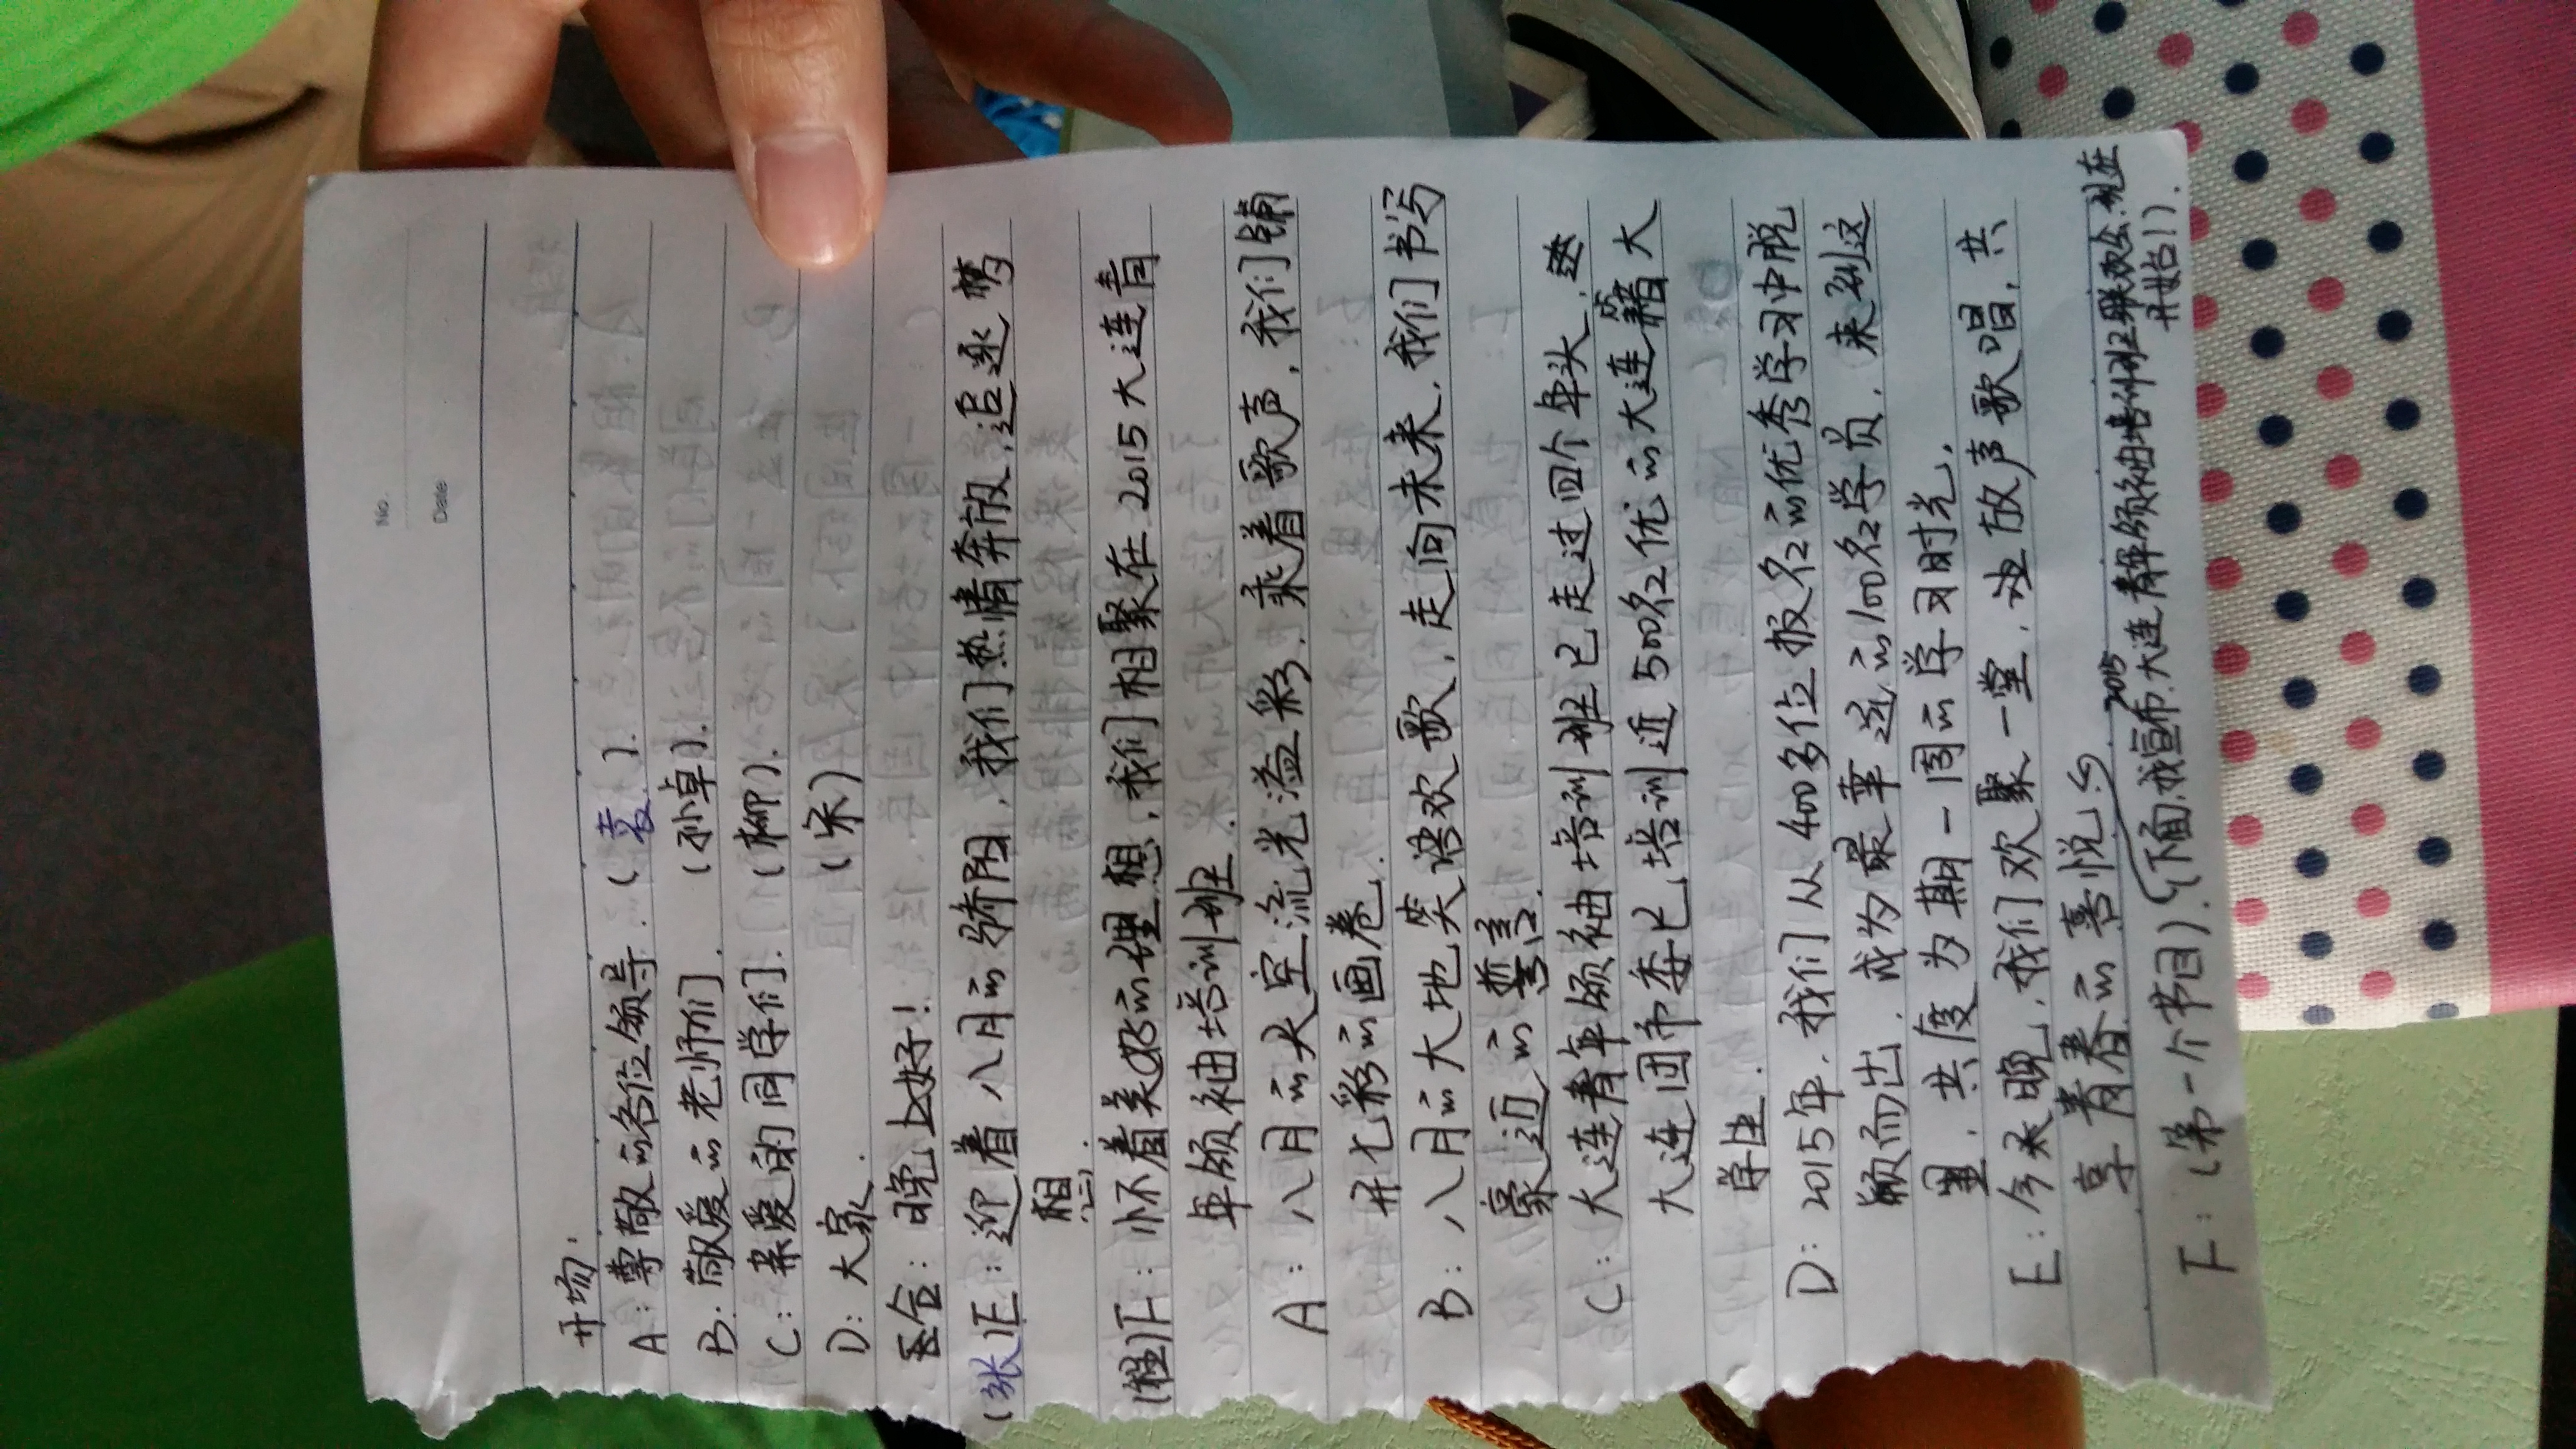 No.
Date
开场:
A: 尊敬的各位领导. (袁).
B: 敬爱的老师们. (孙卓).
C: 亲爱的同学们. (柳).
D: 大家. (宋)
合: 晚上好!
(张)E: 迎着八月的骄阳,我们热情奔放,追逐梦
想.
(程)F: 怀着美好的理想,我们相聚在2015大连青
年领袖培训班.
A: 八月的天空流光溢彩,乘着歌声,我们铺
开七彩的画卷.
B: 八月的大地笑语欢歌,走向未来,我们书写
豪迈的誓言.
C: 大连青年领袖培训班已走过四个年头,
大连团市委已培训近500名优秀的大连籍大
学生.
D: 2015年,我们从400多位报名的优秀学习中脱
颖而出,成为最幸运的100名学员,来到这
里,共度为期一周的学习时光.
E: 今晚,我们欢聚一堂,放声歌唱,共
享青春的喜悦
F: (第一个节目).(下面,我宣布,2015大连青年领袖培训班联欢会,现在
开始!).